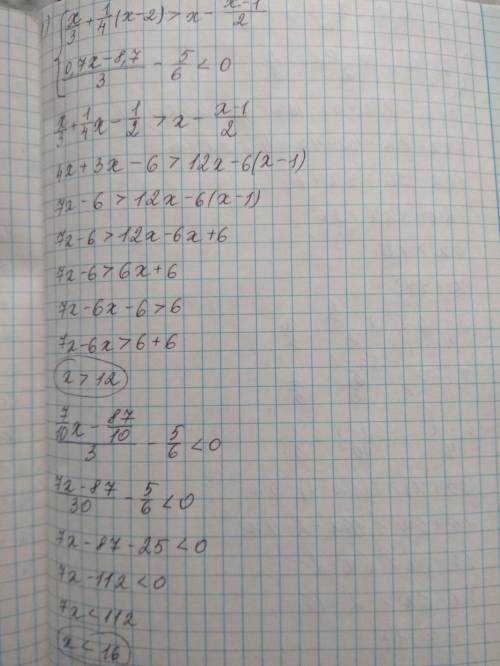 ) { x/3 + 1/4 (x-2) > x - (x-1)/2
{ (0,7x-8,7)/3 - 5/6 < 0
x/3 + 1/4 x - 1/2 > x - (x-1)/2
4x + 3x - 6 > 12x - 6(x-1)
7x - 6 > 12x - 6(x-1)
7x - 6 > 12x - 6x + 6
7x - 6 > 6x + 6
7x - 6x - 6 > 6
7x - 6x > 6 + 6
x > 12
(7/10 x - 87/10)/3 - 5/6 < 0
(7x - 87)/30 - 5/6 < 0
7x - 87 - 25 < 0
7x - 112 < 0
7x < 112
x < 16